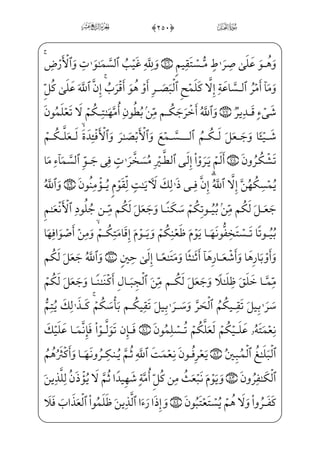 سُورَةُ النَّحْلِ ﴿٢٥٠﴾ الجُزْءُ الرَّابِعَ عَشَرَ
وَهُوَ عَلَىٰ صِرَٰطٍ مُّسْتَقِيمٍ ﴿٧٦﴾ وَلِلَّهِ غَيْبُ ٱلسَّمَٰوَٰتِ وَٱلْأَرْضِ ۚ
وَمَآ أَمْرُ ٱلسَّاعَةِ إِلَّا كَلَمْحِ ٱلْبَصَرِ أَوْ هُوَ أَقْرَبُ ۚ إِنَّ ٱللَّهَ عَلَىٰ كُلِّ
شَىْءٍ قَدِيرٌ ﴿٧٧﴾ وَٱللَّهُ أَخْرَجَكُم مِّنۢ بُطُونِ أُمَّهَٰتِكُمْ لَا تَعْلَمُونَ
شَيْـًٔا وَجَعَلَ لَكُمُ ٱلسَّمْعَ وَٱلْأَبْصَٰرَ وَٱلْأَفْـِٔدَةَ ۙ لَعَلَّكُمْ
تَشْكُرُونَ ﴿٧٨﴾ أَلَمْ يَرَوْا۟ إِلَى ٱلطَّيْرِ مُسَخَّرَٰتٍ فِى جَوِّ ٱلسَّمَآءِ مَا
يُمْسِكُهُنَّ إِلَّا ٱللَّهُ ۗ إِنَّ فِى ذَٰلِكَ لَـَٔايَٰتٍ لِّقَوْمٍ يُؤْمِنُونَ ﴿٧٩﴾ وَٱللَّهُ
جَعَلَ لَكُم مِّنۢ بُيُوتِكُمْ سَكَنًا وَجَعَلَ لَكُم مِّن جُلُودِ ٱلْأَنْعَٰمِ
بُيُوتًا تَسْتَخِفُّونَهَا يَوْمَ ظَعْنِكُمْ وَيَوْمَ إِقَامَتِكُمْ ۙ وَمِنْ أَصْوَافِهَا
وَأَوْبَارِهَا وَأَشْعَارِهَآ أَثَٰثًا وَمَتَٰعًا إِلَىٰ حِينٍ ﴿٨٠﴾ وَٱللَّهُ جَعَلَ لَكُم
مِّمَّا خَلَقَ ظِلَٰلًا وَجَعَلَ لَكُم مِّنَ ٱلْجِبَالِ أَكْنَٰنًا وَجَعَلَ لَكُمْ
سَرَٰبِيلَ تَقِيكُمُ ٱلْحَرَّ وَسَرَٰبِيلَ تَقِيكُم بَأْسَكُمْ ۚ كَذَٰلِكَ يُتِمُّ
نِعْمَتَهُۥ عَلَيْكُمْ لَعَلَّكُمْ تُسْلِمُونَ ﴿٨١﴾ فَإِن تَوَلَّوْا۟ فَإِنَّمَا عَلَيْكَ
ٱلْبَلَٰغُ ٱلْمُبِينُ ﴿٨٢﴾ يَعْرِفُونَ نِعْمَتَ ٱللَّهِ ثُمَّ يُنكِرُونَهَا وَأَكْثَرُهُمُ
ٱلْكَٰفِرُونَ ﴿٨٣﴾ وَيَوْمَ نَبْعَثُ مِن كُلِّ أُمَّةٍ شَهِيدًا ثُمَّ لَا يُؤْذَنُ لِلَّذِينَ
كَفَرُوا۟ وَلَا هُمْ يُسْتَعْتَبُونَ ﴿٨٤﴾ وَإِذَا رَءَا ٱلَّذِينَ ظَلَمُوا۟ ٱلْعَذَابَ فَلَا